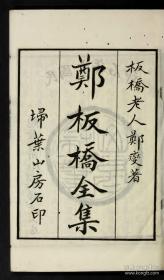 板橋老人鄭燮著
鄭板橋全集
掃葉山房石印